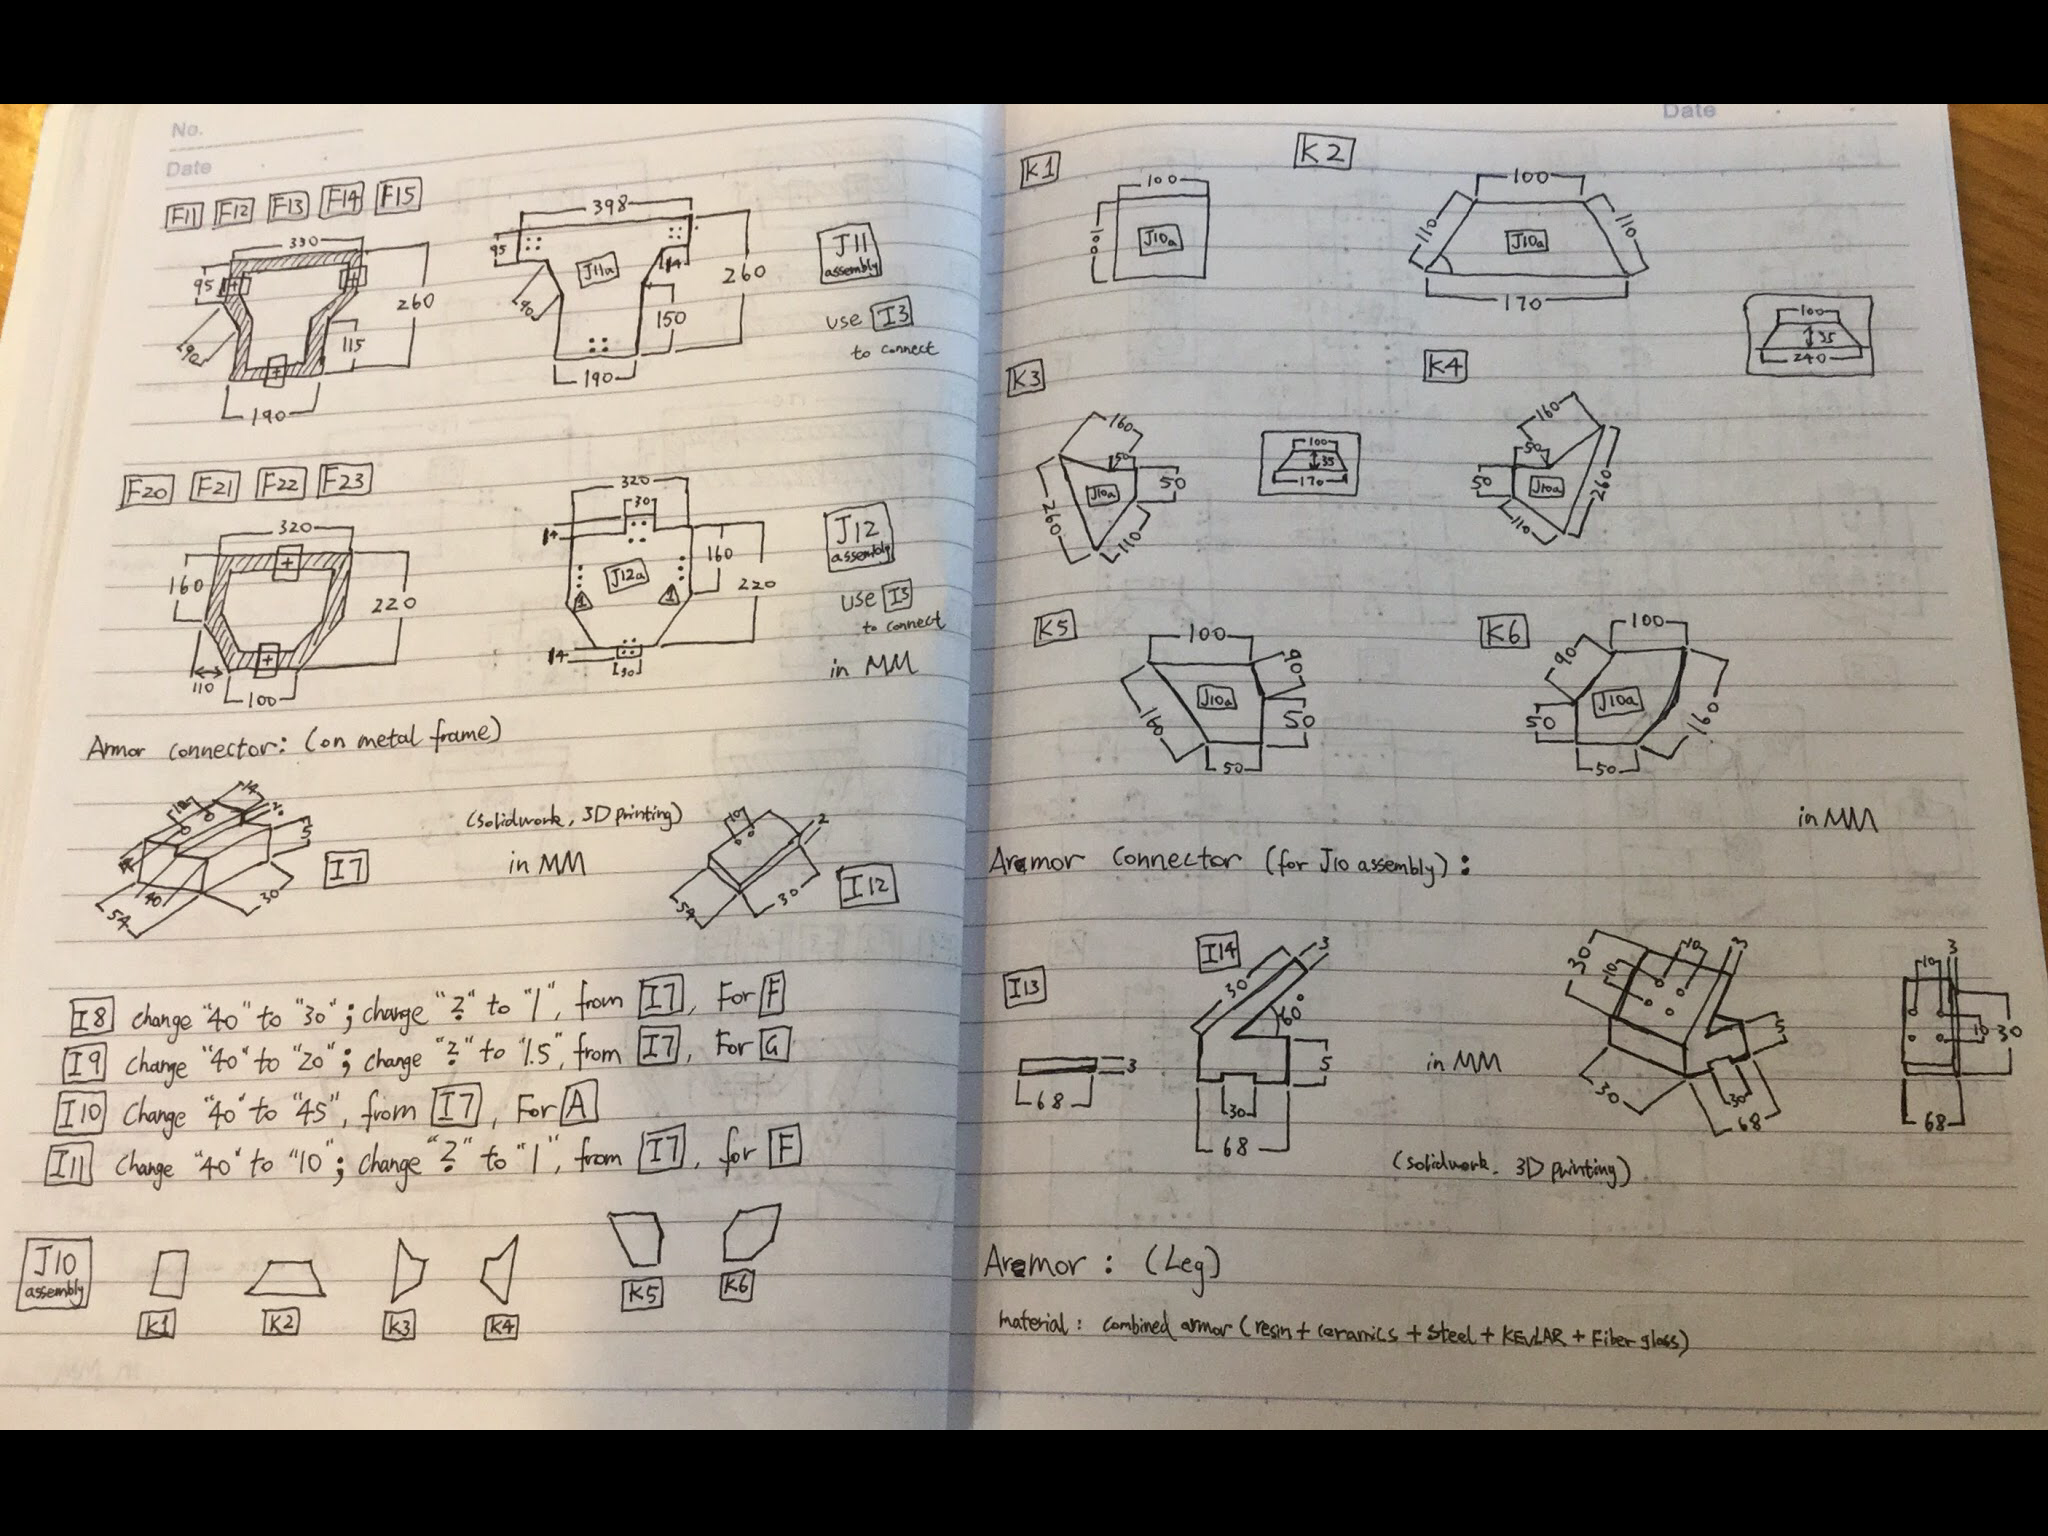 No.
Date
F11 F12 F13 F14 F15
330
95
260
90
115
190
398
95
J11a
14
260
90
150
190
J11
assembly
use I3
to connect
F20 F21 F22 F23
320
160
220
110
100
320
30
14
160
J12a
220
1 1
14
30
J12
assembly
use I3
to connect
in MM
Armor connector: (on metal frame)
10
14
2
5
14
40
54
30
I7
(solidwork, 3D printing)
in MM
10
2
54
30
I12
I8 change "40" to "30"; change "2" to "1", from I7, For F
I9 change "40" to "20"; change "2" to "1.5", from I7, For G
I10 change "40" to "45", from I7, For A
I11 change "40" to "10"; change "2" to "1", from I7, for F
J10
assembly
K1
K2
K3
K4
K5
K6
Date
K1
100
100
J10a
K2
100
110
110
J10a
170
100
35
240
K3
160
50
J10a
50
260
110
100
35
170
K4
160
50
50
J10a
260
110
K5
100
90
J10a
160
50
50
K6
100
90
J10a
50
160
50
in MM
Aremor connector (for J10 assembly):
I13
3
68
I14
3
30
60°
5
30
68
in MM
30
10
10
3
5
30
30
68
3
10
10
30
68
(solidwork, 3D printing)
Aremor: (Leg)
material: combined armor (resin + ceramics + steel + KEVLAR + Fiber glass)